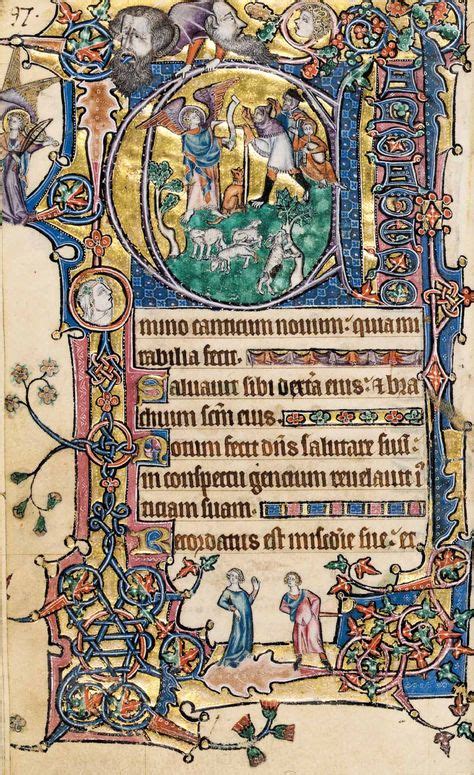 97.
C
mino canticum nouum: quia mi
rabilia fecit.
Saluauit sibi dext̾a eius: & bra
chium scm̄ eius.
Notum fecit dn̄s salutare suū:
in conspectu gencium reuelauit
ticiam suam.
Recordatus est mis̄cdie sue: et